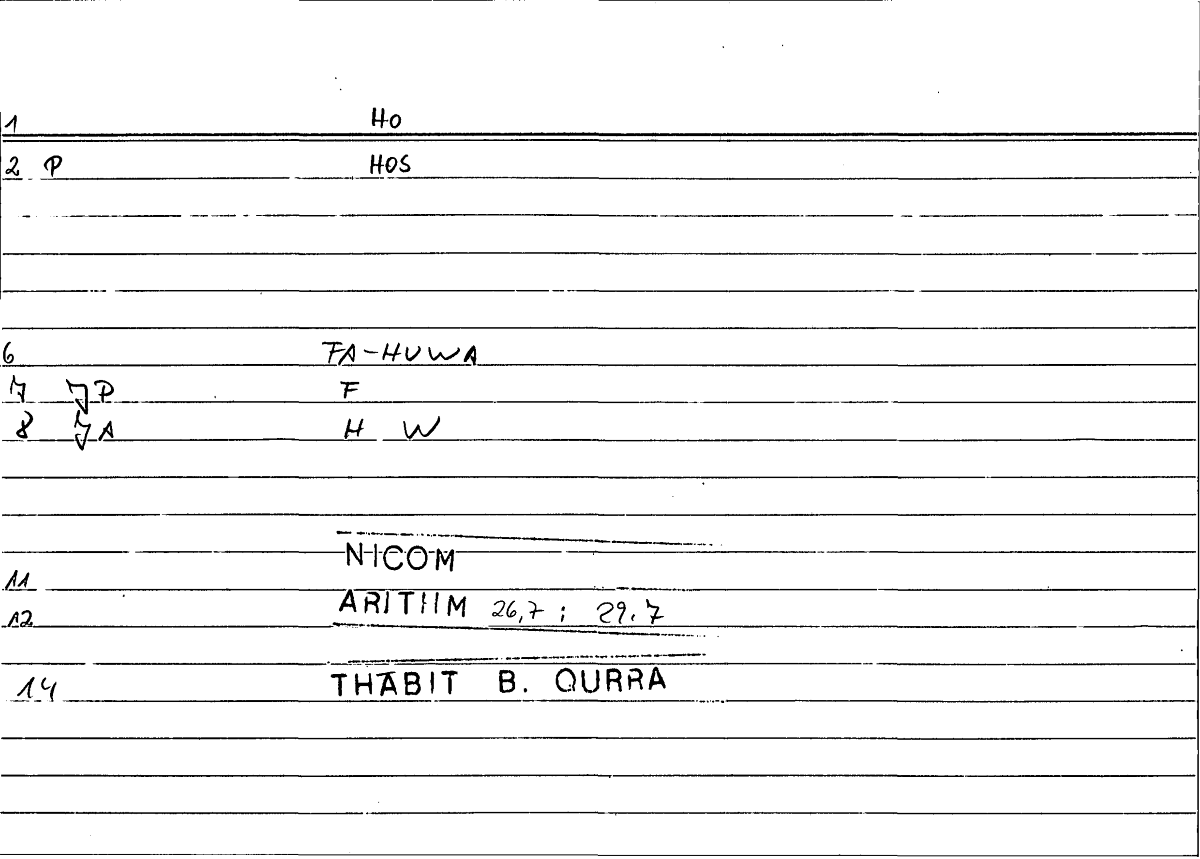 1 HO
2 P HOS
6 FA-HUWA
7 JP F
8 JA H W
NICOM
11
ARITHM 26,7 ; 29,7
12
14 THABIT B. QURRA